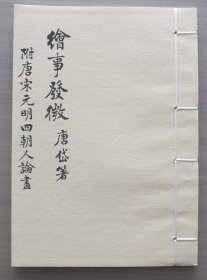 繪事發微 唐岱著
附唐宋元明四朝人論畫